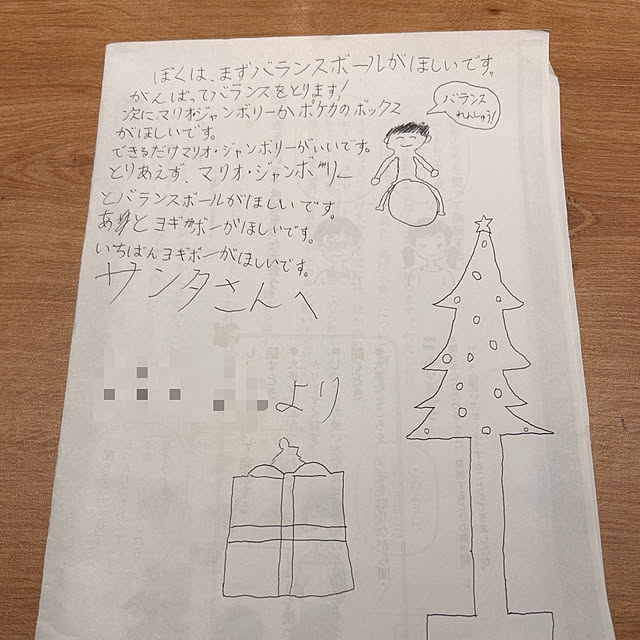 ぼくは、まずバランスボールがほしいです。
がんばってバランスをとります!
次にマリオ・ジャンボリーかポケカのボックス
がほしいです。
できるだけマリオ・ジャンボリーがいいです。
とりあえず、マリオ・ジャンボリー
とバランスボールがほしいです。
あとヨギボーがほしいです。
いちばんヨギボーがほしいです。
サンタさんへ
より
バランス
れんしゅう!